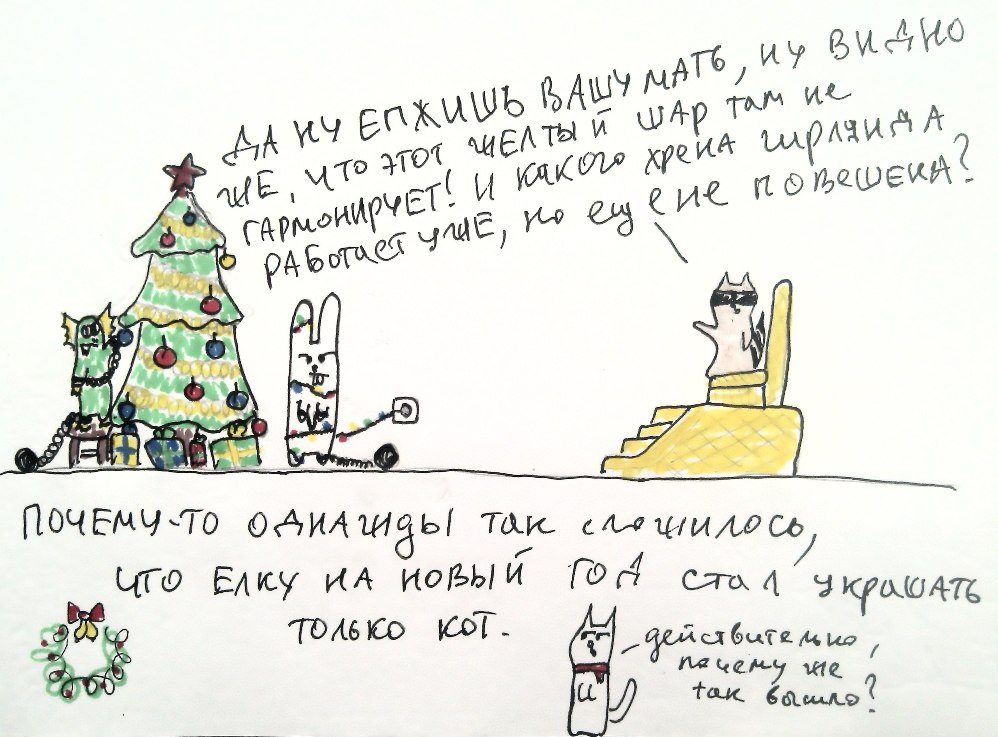 ДА НУ ЕПЖИШЬ ВАШУ МАТЬ, НУ ВИДНО
ЖЕ, ЧТО ЭТОТ ЖЕЛТЫЙ ШАР ТАМ НЕ
ГАРМОНИРУЕТ! И КАКОГО ХРЕНА ГИРЛЯНДА
РАБОТАЕТ УЖЕ, НО ЕЩЕ НЕ ПОВЕШЕНА?
ПОЧЕМУ-ТО ОДНАЖДЫ ТАК СЛОЖИЛОСЬ,
ЧТО ЕЛКУ НА НОВЫЙ ГОД СТАЛ УКРАШАТЬ
ТОЛЬКО КОТ.
действительно,
почему же
так вышло?